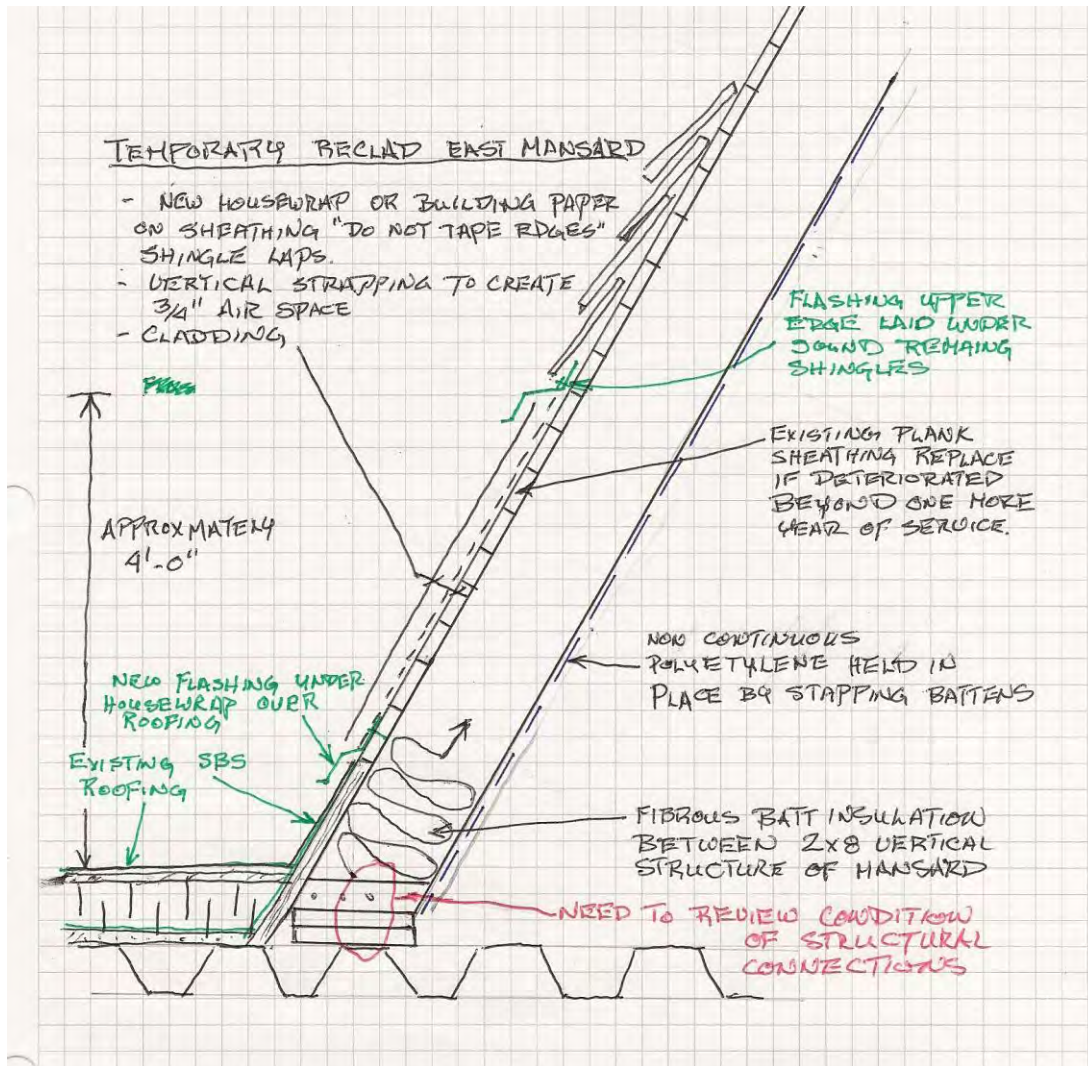 TEMPORARY RECLAD EAST MANSARD
- NEW HOUSEWRAP OR BUILDING PAPER
ON SHEATHING "DO NOT TAPE EDGES"
SHINGLE LAPS.
- VERTICAL STRAPPING TO CREATE
3/4" AIR SPACE
- CLADDING
FLASHING UPPER
EDGE LAID UNDER
SOUND REMAING
SHINGLES
EXISTING PLANK
SHEATHING REPLACE
IF DETERIORATED
BEYOND ONE MORE
YEAR OF SERVICE.
APPROXMATELY
4'-0"
NON CONTINUOUS
POLYETYLENE HELD IN
PLACE BY STAPPING BATTENS
NEW FLASHING UNDER
HOUSEWRAP OVER
ROOFING
EXISTING SBS
ROOFING
FIBROUS BATT INSULATION
BETWEEN 2x8 VERTICAL
STRUCTURE OF MANSARD
NEED TO REVIEW CONDITION
OF STRUCTURAL
CONNECTIONS